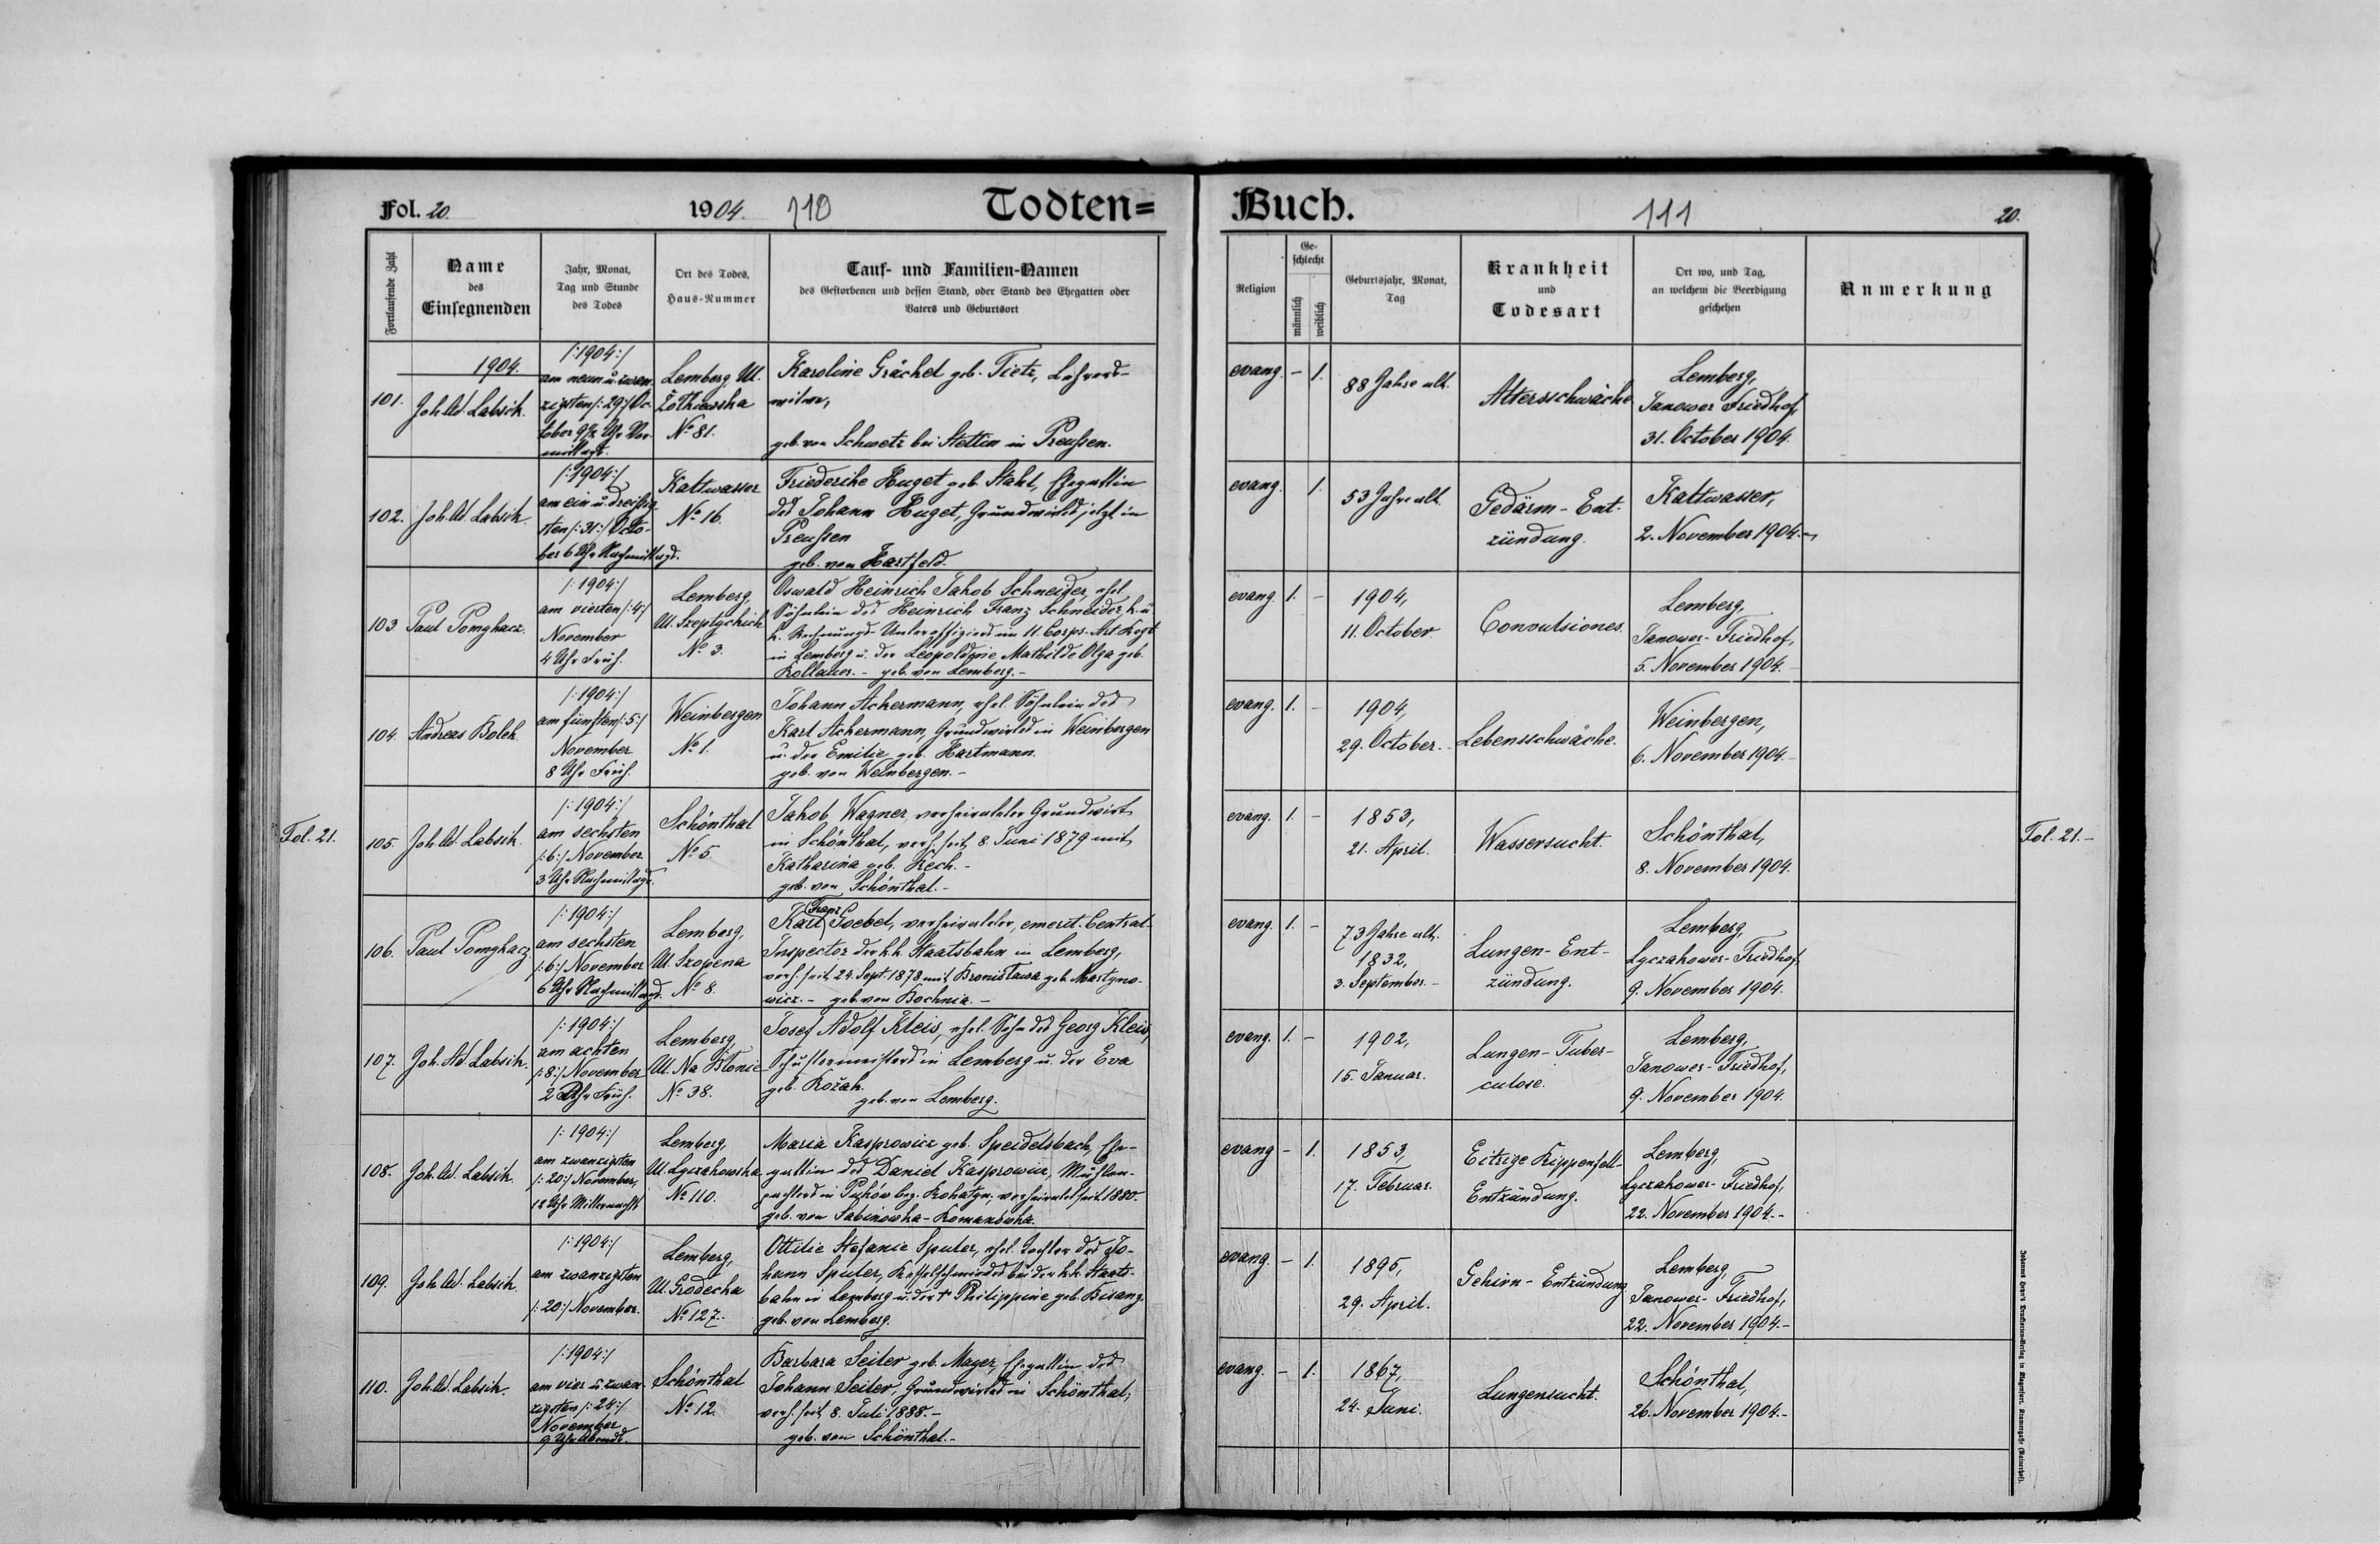 Fol. 20. 1904. 110 Todten=
Fortlaufende Zahl
Name
des
Einsegnenden
Jahr, Monat,
Tag und Stunde
des Todes
Ort des Todes,
Haus-Nummer
Tauf- und Familien-Namen
des Gestorbenen und dessen Stand, oder Stand des Ehegatten oder
Vaters und Geburtsort
1904.
101.
Joh. Ad. Labsik.
/:1904:/
am neun u. zwan-
zigsten /:29:/ Oc-
tober 9½ Uhr Vor-
mittags.
Lemberg, Ul.
Żołkiewska
No 81.
Karoline Gráchel geb. Tietz, Lehrers-
witwe,
geb. von Schwetz bei Stettin in Preußen.
102.
Joh. Ad. Labsik.
/:1904:/
am ein u. dreißig-
sten /:31:/ Octo-
ber 6 Uhr Nachmittags.
Kaltwasser
No 16.
Friederike Huget geb. Stahl, Ehegattin
des Johann Huget, Grundwirts, jetzt in
Preußen
geb. von Hartfeld.
103
Paul Pomykacz.
/:1904:/
am vierten /:4:/
November
4 Uhr Früh.
Lemberg,
Ul. Szeptyckich
No 3.
Oswald Heinrich Jakob Schneider, ehel.
Söhnlein des Heinrich Franz Schneider, k. u.
k. Rechnungs-Unteroffiziers im 11. Corps-Art. Regt
in Lemberg u. der Leopoldine Mathilde Olga geb.
Kollauer. - geb. von Lemberg. -
104.
Andreas Bolek
/:1904:/
am fünften /:5:/
November
8 Uhr Früh.
Weinbergen
No 1.
Johann Ackermann, ehel. Söhnlein des
Karl Ackermann, Grundwirts in Weinbergen
u. der Emilie geb. Hartmann.
geb. von Weinbergen. -
Fol. 21.
105.
Joh. Ad. Labsik.
/:1904:/
am sechsten
/:6:/ November
3 Uhr Nachmittags.
Schönthal
No 5.
Jakob Wagner, verheirateter Grundwirt
in Schönthal, verh. seit 8. Juni 1879 mit
Katharina geb. Rech. -
geb. von Schönthal. -
106.
Paul Pomykacz
/:1904:/
am sechsten
/:6:/ November
6 Uhr Nachmittags.
Lemberg,
Ul. Szopena
No 8.
Franz
Karl Goebel, verheirateter, emerit. Central-
Inspector der k.k. Staatsbahn in Lemberg,
verh. seit 24. Sept. 1878 mit Bronisława geb. Martyno-
wicz. - geb. von Bochnia. -
107.
Joh. Ad. Labsik.
/:1904:/
am achten
/:8:/ November
2 Uhr Früh.
Lemberg,
Ul. Na Błonie
No 38.
Josef Adolf Kleis, ehel. Sohn des Georg Kleis,
Schustermeisters in Lemberg u. der Eva
geb. Kożak.
geb. von Lemberg.
108.
Joh. Ad. Labsik.
/:1904:/
am zwanzigsten
/:20:/ November,
12 Uhr Mitternacht
Lemberg,
Ul. Lyczakowska
No 110.
Maria Kasprowicz geb. Speidelsbach, Ehe-
gattin des Daniel Kasprowicz, Mühlen-
pachters in Puków bez. Rohatyn, verheiratet seit 1880.
geb. von Sabinowka-Romanówka.
109.
Joh. Ad. Labsik
/:1904:/
am zwanzigsten
/:20:/ November.
Lemberg,
Ul. Grodecka
No 127.
Ottilie Stefanie Sputer, ehel. Tochter des Jo-
hann Sputer, Kesselschmiedes bei der k.k. Staats-
bahn in Lemberg u. der † Philippine geb. Bisanz.
geb. von Lemberg.
110.
Joh. Ad. Labsik.
/:1904:/
am vier u. zwan-
zigsten /:24:/
November
9 Uhr Abends.
Schönthal
No 12.
Barbara Seiler geb. Mayer, Ehegattin des
Johann Seiler, Grundwirts in Schönthal,
verh. seit 8. Juli 1888. -
geb. von Schönthal. -
Buch. 111 20.
Religion
Ge-
schlecht
männlich
weiblich
Geburtsjahr, Monat,
Tag
Krankheit
und
Todesart
Ort wo, und Tag,
an welchem die Beerdigung
geschehen
Anmerkung
evang. - 1.
88 Jahre alt.
Altersschwäche
Lemberg,
Janower Friedhof,
31. October 1904.
evang. 1.
53 Jahre alt.
Gedärm-Ent-
zündung.
Kaltwasser,
2. November 1904. -
evang. 1. -
1904,
11. October.
Convulsiones.
Lemberg,
Janower-Friedhof,
5. November 1904. -
evang. 1. -
1904,
29. October. -
Lebensschwäche.
Weinbergen,
6. November 1904. -
evang. 1. -
1853,
21. April.
Wassersucht.
Schönthal,
8. November 1904.
Fol. 21. -
evang. 1. -
73 Jahre alt.
1832,
3. September. -
Lungen-Ent-
zündung.
Lemberg,
Lyczakower-Friedhof,
9. November 1904.
evang. 1. -
1902,
15. Januar.
Lungen-Tuber-
culose.
Lemberg,
Janower-Friedhof,
9. November 1904.
evang - 1.
1853,
17. Februar.
Eitrige Rippenfell-
Entzündung.
Lemberg,
Lyczakower-Friedhof,
22. November 1904. -
evang. - 1.
1895,
29. April.
Gehirn-Entzündung
Lemberg,
Janower-Friedhof,
22. November 1904. -
evang. - 1.
1867,
24. Juni.
Lungensucht.
Schönthal,
26. November 1904. -